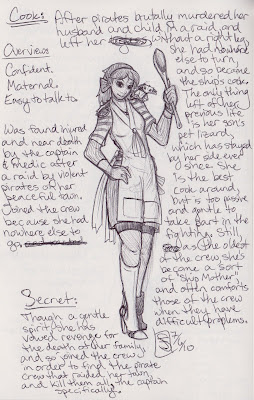 Cook:
After pirates brutally murdered her
husband and child in a raid and
left her without a right leg,
she had nowhere
else to turn,
and so became
the ship's cook.
The only thing
left of her
previous life
is her son's
pet lizard,
which has stayed
by her side ever
since. She
is the best
cook around,
but is too passive
and gentle to
take part in the
fighting. Still
as the oldest of
the crew, she's
become a sort
of "Ship Mother",
and often comforts
those of the crew
when they have
difficult problems.
7/6/10
Overview:
Confident.
Maternal.
Easy to talk to.
Was found injured
and near death
by the captain
& medic after
a raid by violent
pirates of her
peaceful town.
Joined the crew
because she had
nowhere else to
go.
Secret:
Though a gentle
spirit, she has
vowed revenge for
the death of her family,
and so joined the crew
in order to find the pirate
crew that raided her town
and kill them all, the captain
specifically.